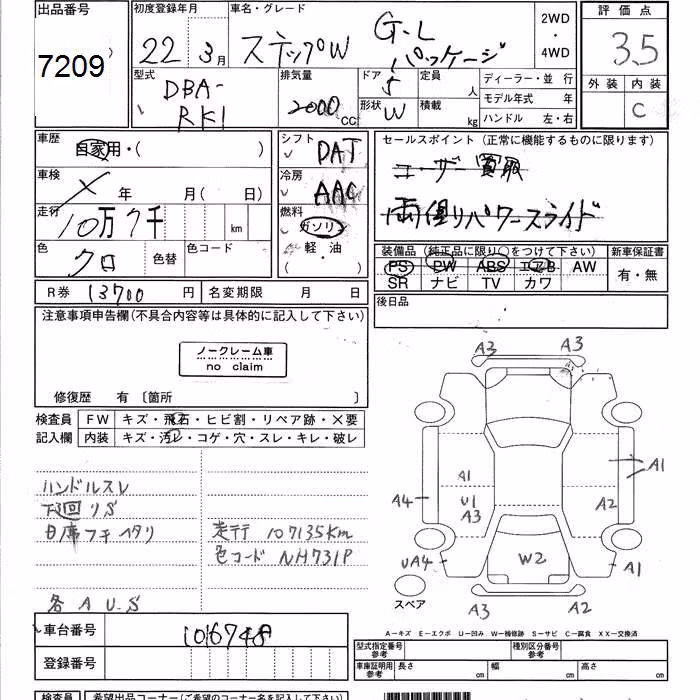 出品番号
7209
初度登録年月
22年 3月
車名・グレード
ステップW G-L パッケージ
2WD
・
4WD
評価点
3.5
外装 内装
C
型式
DBA-
RK1
排気量
2000cc
ドア 5
形状 W
定員 人
積載 kg
ディーラー・並 行
モデル年式 年
ハンドル 左・右
車歴
自家用・( )
車検
× 年 月( 日)
走行
10万7千 km
色
クロ
色替
色コード
シフト
DAT
冷房
AAC
燃料
ガソリン
・軽・油
( )
セールスポイント(正常に機能するものに限ります)
ユーザー買取
両側りパワースライド
装備品(純正品に限り○をつけて下さい)
新車保証書
PS PW ABS エアB AW
SR ナビ TV カワ
有・無
R券 13700円
名変期限 月 日
後日品
注意事項申告欄(不具合内容等は具体的に記入して下さい)
ノークレーム車
no claim
修復歴 有 〔箇所 〕
検査員
記入欄
FW キズ・飛石・ヒビ割・リペア跡・×要
内装 キズ・汚レ・コゲ・穴・スレ・キレ・破レ
ハンドルスレ
下回リS
D席フチヘタリ
走行 107135Km
色コード NH731P
各 A U.S
A3 A3
A1
A1
U1
A3
A4
A2
UA4
W2
A1
スペア
A3
A2
A-キズ E-エクボ U-凹み W-補修跡 S-サビ C-腐食 XX-交換済
車台番号
1016748
登録番号
型式指定番号
参考
種別区分番号
参考
車庫証明用
参考
長さ cm
幅 cm
高さ cm
検査員
希望出品コーナー(ご希望のコーナー名を記入して下さい)